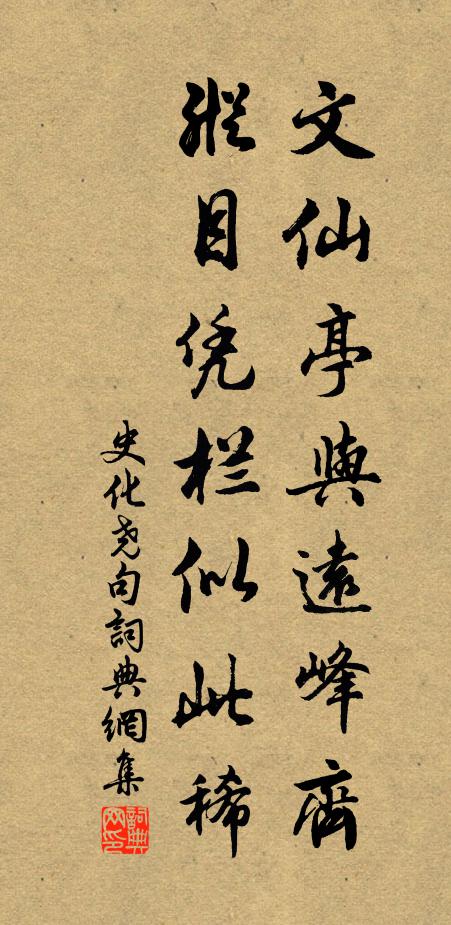 文仙亭與遠峰齊
縱目凭栏似此稀
史化尧句詞典網集
詞典网印